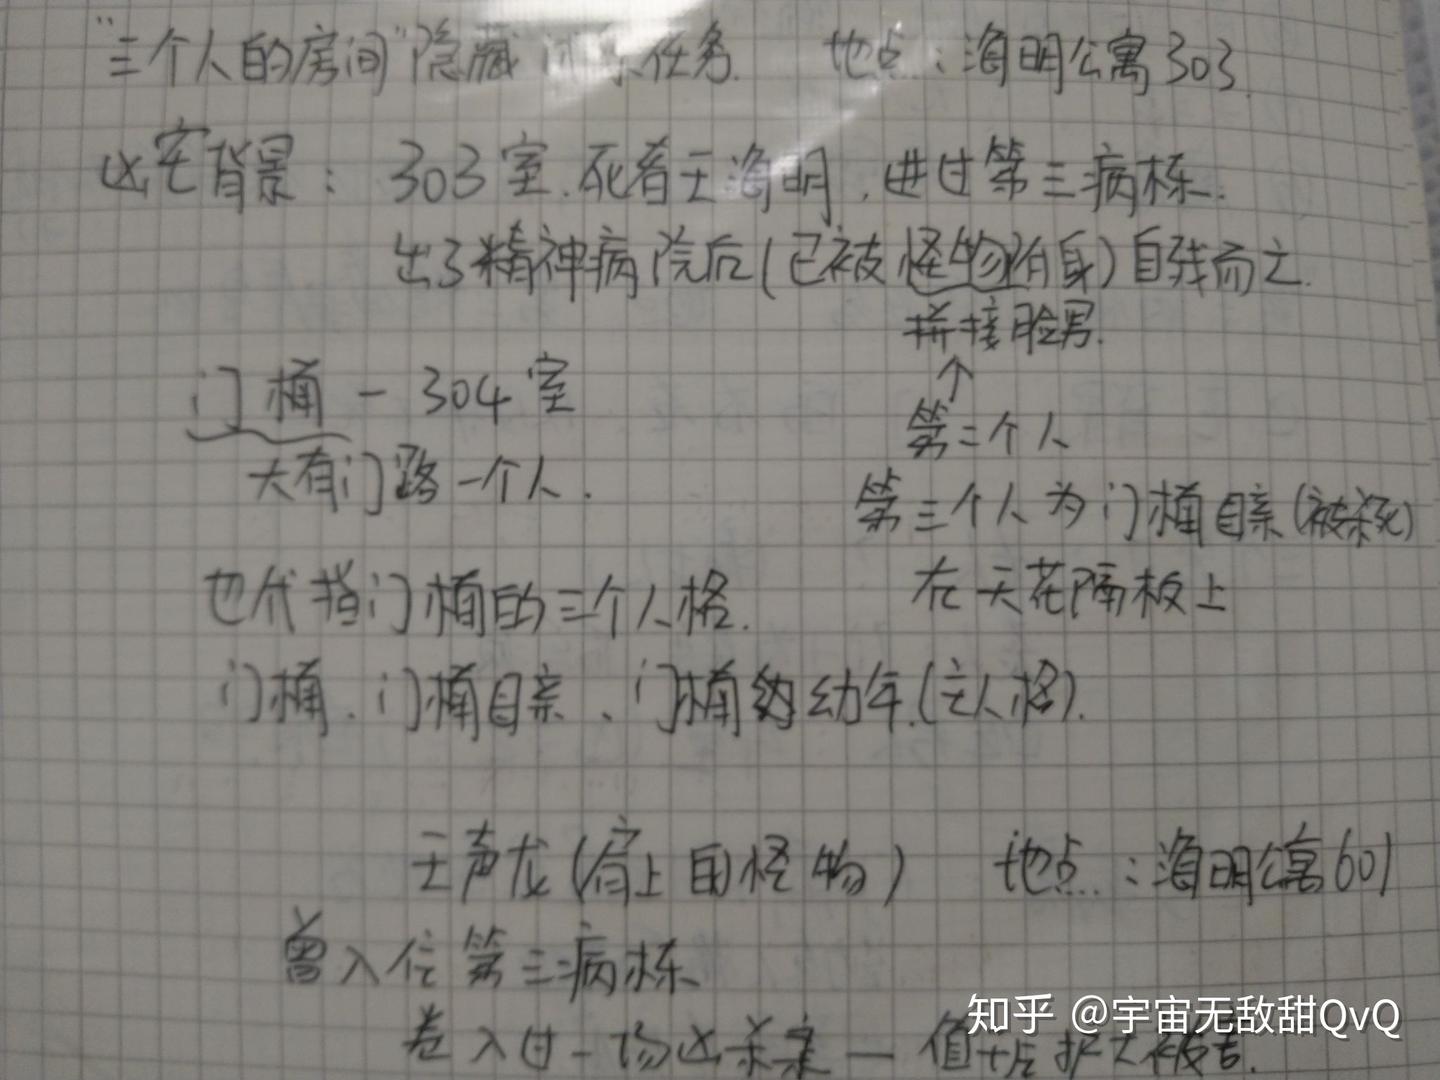 "三个人的房间"隐藏 任务. 地点:海明公寓303.
凶宅背景: 303室.死者王海明,进过第三病栋.
出了精神病院后(已被怪物附身)自残而亡.
拼接脸男.
↑
门楠 - 304室
第二个人
大有门路一个人.
第三个人为门楠母亲(被杀死)
在天花隔板上
也代指门楠的三个人格.
门楠、门楠母亲、门楠的幼年.(主人格).
王声龙(肩上的怪物) 地点:海明公寓601
曾入住第三病栋
卷入过一场凶杀案 —
知乎 @宇宙无敌甜QvQ